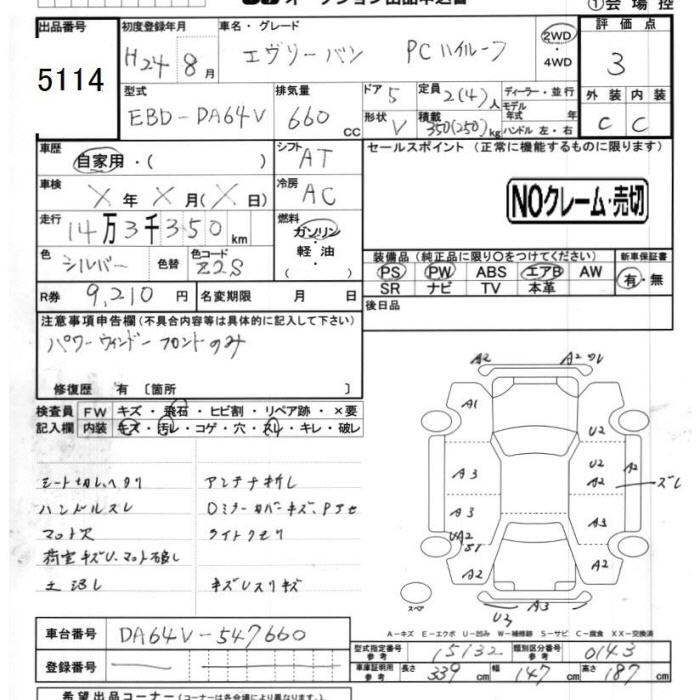 ①会場控
出品番号 初度登録年月 車名・グレード 評価点
5114 H24 8月 エヴリーバン PCハイルーフ 2WD ・ 4WD 3
型式 排気量 ドア 5 定員 2(4)人 ディーラー・並行 外装 内装
EBD-DA64V 660cc 形状 V 積載 350(250)kg モデル年式 年式 C C
ハンドル 左・右
車歴 自家用・( ) シフト AT セールスポイント (正常に機能するものに限ります)
車検 X年X月(X日) 冷房 AC NOクレーム・売切
走行 14万3千350km 燃料 ガソリン 軽油 ( )
色 シルバー 色替 色コード Z2S
装備品 (純正品に限り○をつけてください) 新車保証書
PS PW ABS エアB AW 有・無
SR ナビ TV 本革
R券 9,210円 名変期限 月 日 後日品
注意事項申告欄(不具合内容等は具体的に記入して下さい)
パワーウィンドーフロントのみ
修復歴 有 〔箇所 〕
検査員 FW キズ・飛石・ヒビ割・リペア跡・×要
記入欄 内装 キズ・汚レ・コゲ・穴・スレ・キレ・破レ
シート切レ、ヘタリ アンテナ折レ
ハンドルスレ Dミラーカバーキズ、
マット欠 ライトクモリ
荷室キズU、マット破レ
土 キズUスリキズ
A2 A2 ズレ
A1 U2
U2
A3 A2 A2 ズレ
A3 A3
UA2
S1
A2 A2
スペア
U3 A3
A-キズ E-エクボ U-凹み W-補修跡 S-サビ C-腐食 XX-交換済
車台番号 DA64V-547660
型式指定番号 参考 15132 類別区分番号 参考 0143
登録番号
車庫証明用 参考 長さ 339cm 幅 147cm 高さ 187cm
希望出品コーナー(コーナーは各会場により異なります。)